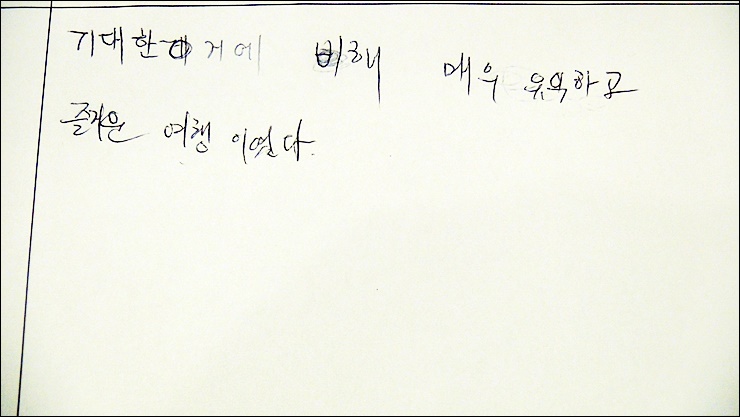 기대한 거에 비해 매우 유익하고
즐거운 여행 이였다.